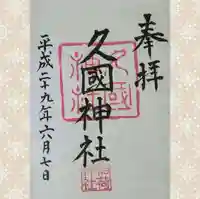 奉拝
久國神社
平成二十九年六月七日